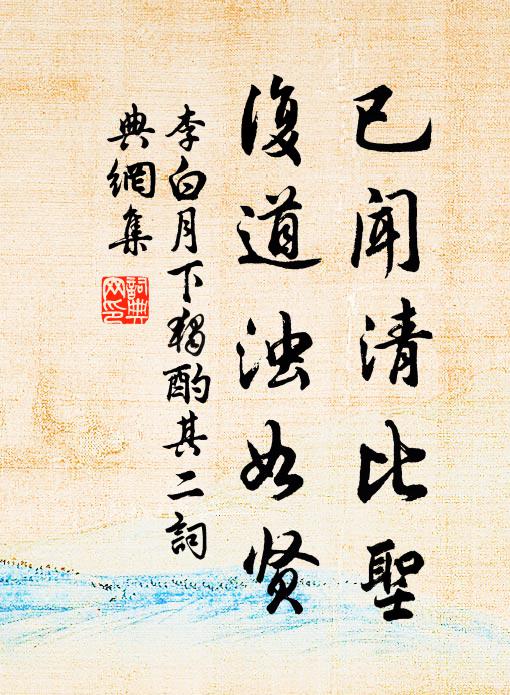 已闻清比聖
復道浊如贤
李白月下獨酌其二詞
典網集
詞典
网印